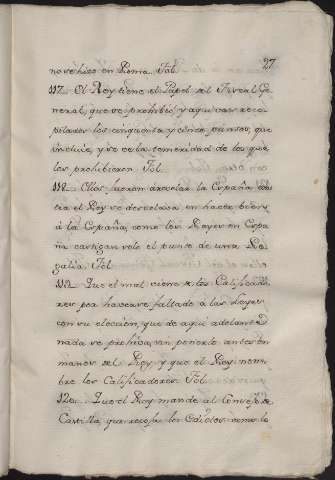 27
no se hizo en Roma. Fol.
117. El Rey tiene el Papel del Fiscal Ge-
neral, que se prohibió, y aqui van reco-
pilados los cinquenta y cinco puntos, que
incluie, y se ve la temeridad de los que
los prohibieron Fol.
118. Ellos fueron à rebelar la España con-
tra el Rey se desvelaba en hacer bien
à la España, como los Reyes en Espa-
ña castigan solo el punto de una Re-
galia. Fol.
119. Que el mal viene de los Calificado-
res por haverse faltado à las Leyes
con su eleccion, que de aqui adelante
nada se prohiba, sin ponerlo antes en
manos del Rey y que el Rey nom-
bre los Calificadores Fol.
120. Que el Rey mande al Consejo de
Castilla, que recoja los Edictos como lo